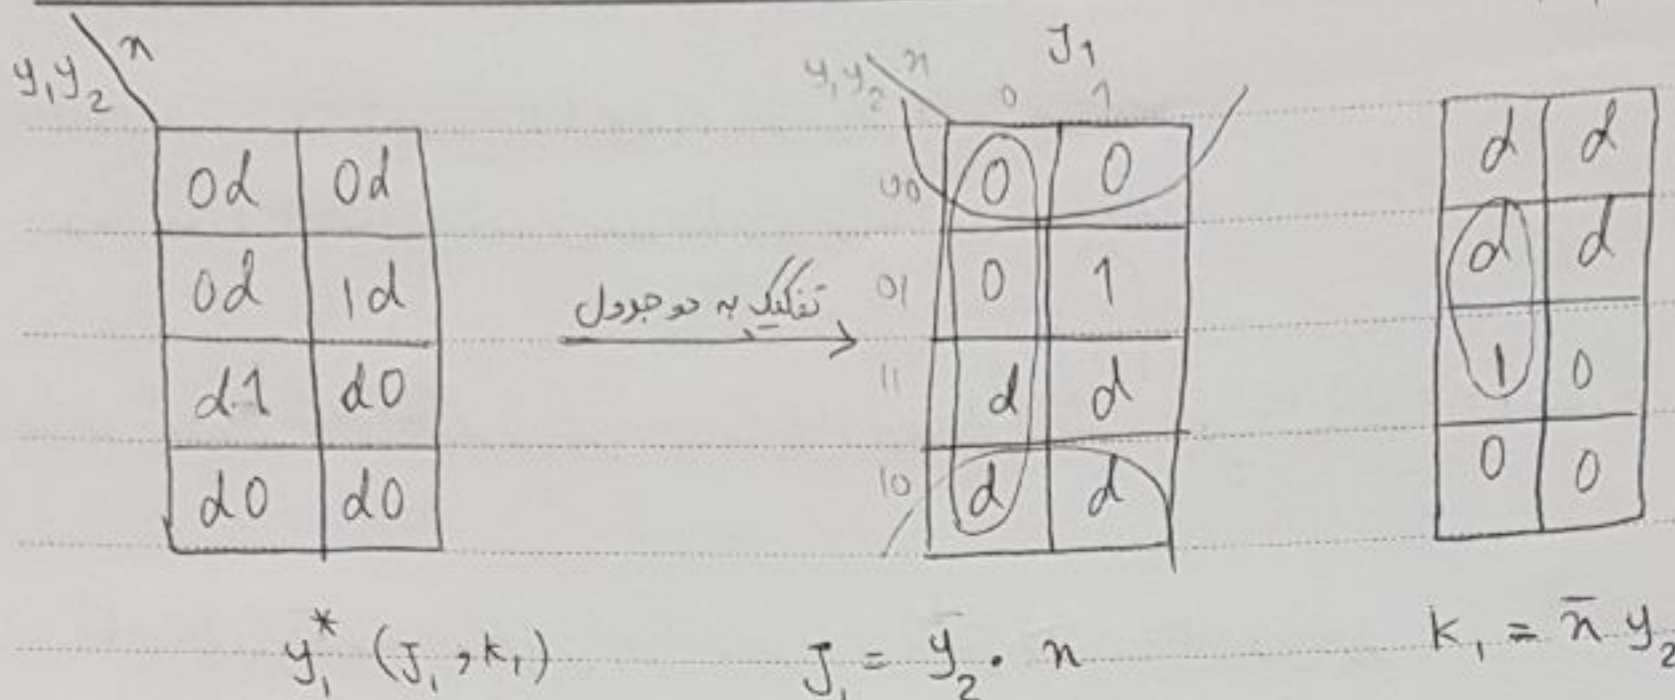 y₁y₂ x
0d 0d
0d 1d
d1 d0
d0 d0
y₁* (J₁, k₁)
تفکیک به دو جدول
J₁
y₁y₂ x
0 1
00 0 0
01 0 1
11 d d
10 d d
J₁ = ȳ₂ . x
d d
d d
1 0
0 0
k₁ = x̄ y₂